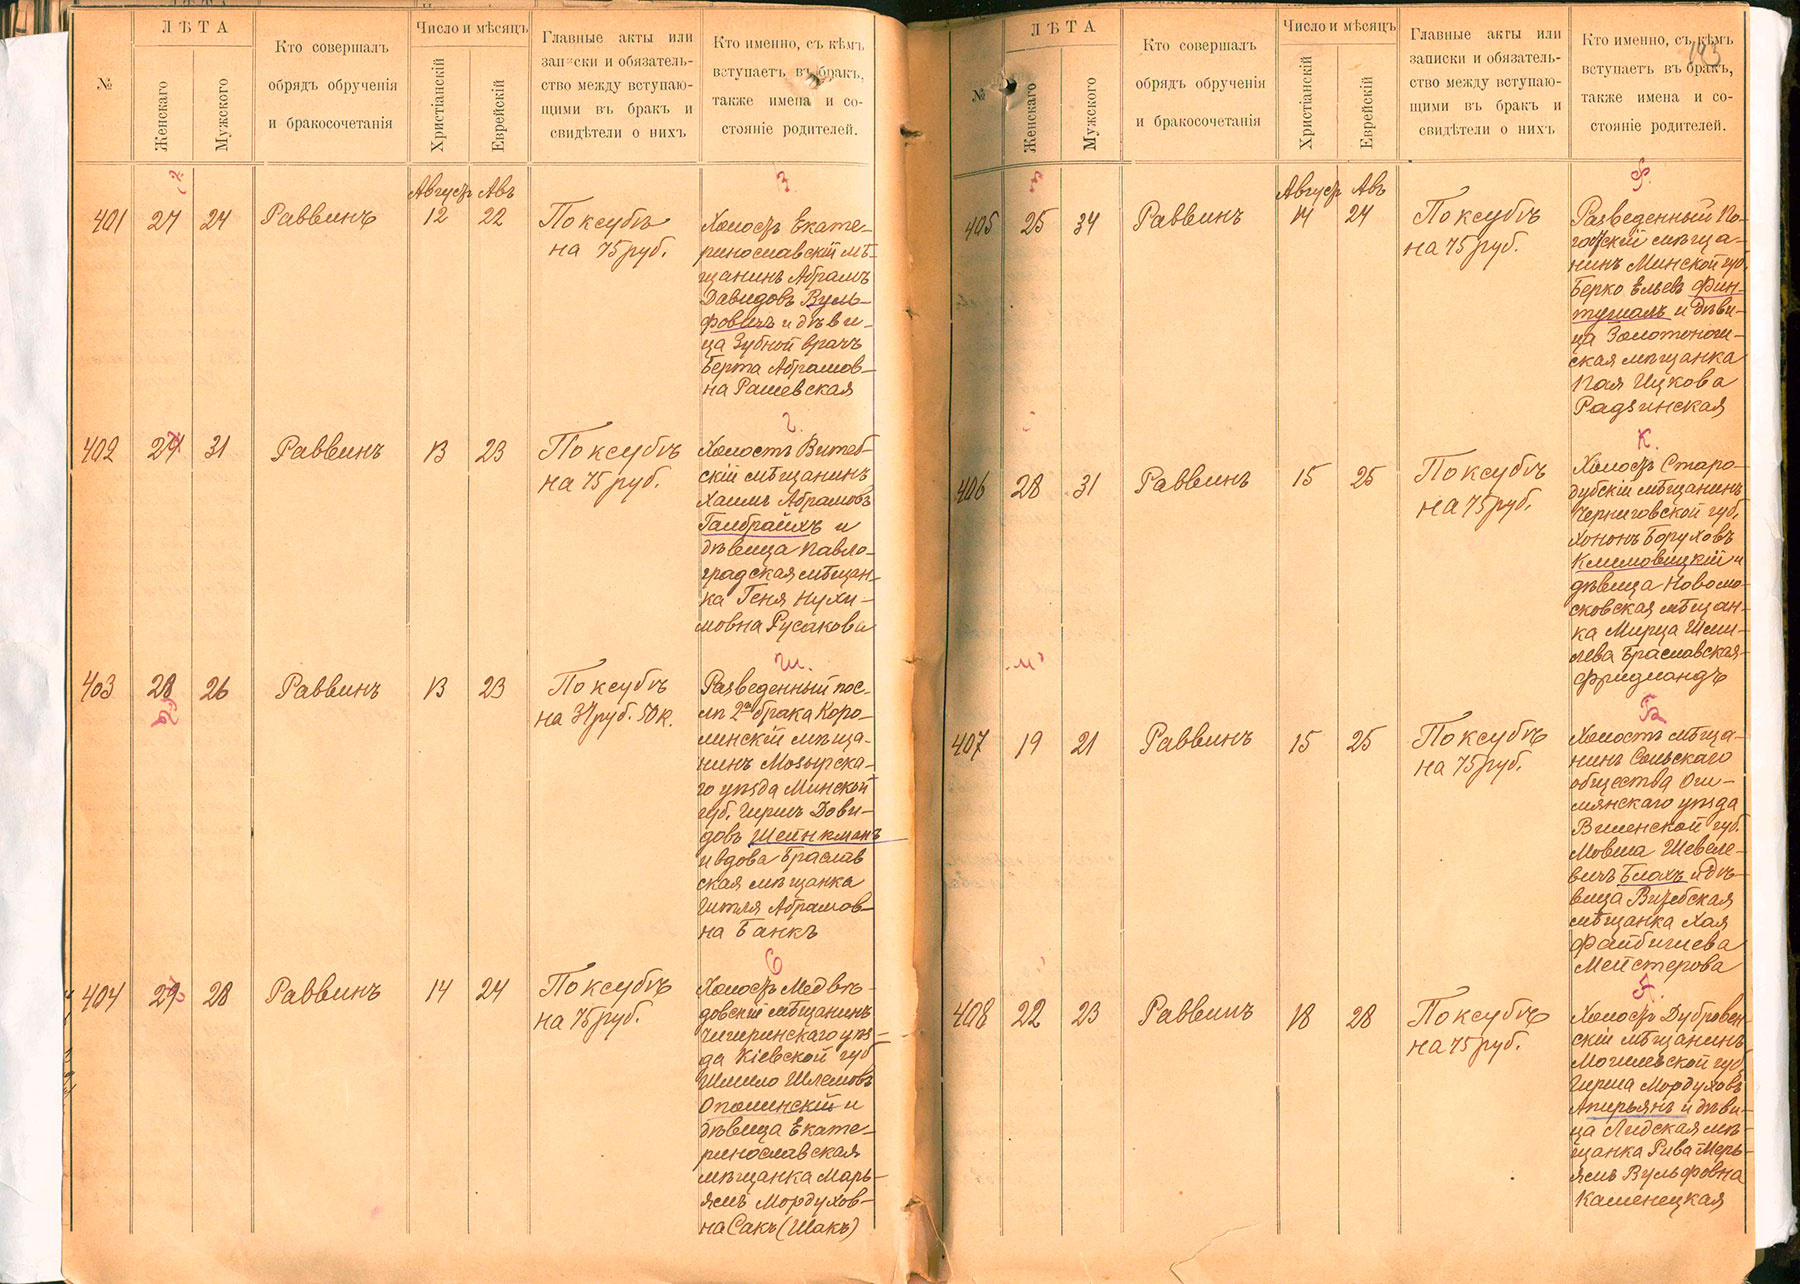 №
ЛѢТА
Женскаго
Мужского
Кто совершалъ
обрядъ обрученія
и бракосочетанія
Число и мѣсяцъ
Христіанскій
Еврейскій
Главные акты или
записки и обязатель-
ство между вступаю-
щими въ бракъ и
свидѣтели о нихъ
Кто именно, съ кѣмъ
вступаетъ въ бракъ,
также имена и со-
стояніе родителей.
З.
Августъ Авъ
401 24 Раввинъ 12 22 По ксубѣ
на 75 руб.
Холостъ Екате-
ринославскій мѣ-
щанинъ Абрамъ
Давидовъ Вуль-
фовичъ и дѣви-
ца Зубной врачъ
Берта Абрамов-
на Рашевская
Г.
402 31 Раввинъ 13 23 По ксубѣ
на 75 руб.
Холостъ Витеб-
скій мѣщанинъ
Хаимъ Абрамовъ
Галбрайхъ и
дѣвица Павло-
градская мѣщан-
ка Геня Нухи-
мовна Русакова
Ш.
403 28 26 Раввинъ 13 23 По ксубѣ
на 37 руб. 50 к.
Разведенный пос-
лѣ 2го брака Коро-
линскій мѣща-
нинъ Мозырска-
го уѣзда Минской
губ. Гиршъ Дови-
довъ Шейнкманъ
и вдова Браслав
ская мѣщанка
Гитля Абрамов-
на Банкъ
С
404 28 Раввинъ 14 24 По ксубѣ
на 75 руб.
Холостъ Медвѣ-
довскій мѣщанинъ
Чигиринскаго уѣз-
да Кіевской губ
Шмило Шлемовъ
Ополинскій и
дѣвица Екате-
ринославская
мѣщанка Марь-
ямъ Мордухов-
на Сакъ (Шакъ)
193
№
ЛѢТА
Женскаго
Мужского
Кто совершалъ
обрядъ обрученія
и бракосочетанія
Число и мѣсяцъ
Христіанскій
Еврейскій
Главные акты или
записки и обязатель-
ство между вступаю-
щими въ бракъ и
свидѣтели о нихъ
Кто именно, съ кѣмъ
вступаетъ въ бракъ,
также имена и со-
стояніе родителей.
Ф.
Августъ Авъ
405 25 34 Раввинъ 14 24 По ксубѣ
на 75 руб.
Разведенный По-
скій мѣща-
нинъ Минской губ.
Берко Ельевъ Фин-
и дѣви-
ца Золотонош-
ская мѣщанка
Пая Ицкова
Радзинская
К.
406 28 31 Раввинъ 15 25 По ксубѣ
на 75 руб.
Холостъ Старо-
дубскій мѣщанинъ
Черниговской губ.
Хононъ Боруховъ
Климовицкій и
дѣвица Новомо-
сковская мѣщан-
ка Мирца Шми-
лева Браславская-
Фридландъ
Б.
407 19 21 Раввинъ 15 25 По ксубѣ
на 75 руб.
Холостъ мѣща-
нинъ Сольскаго
общества Ош-
мянскаго уѣзда
Виленской губ.
Мовша Шевеле-
вичъ Блахъ и дѣ-
вица Витебская
мѣщанка Хая
Файбишева
Мейстерова
408 22 23 Раввинъ 18 28 По ксубѣ
на 75 руб.
Холостъ Дубровен-
скій мѣщанинъ
Могилевской губ
Гирша Мордуховъ
Апирьянъ и дѣви-
ца Лидская мѣ-
щанка Рива Мерь-
ямъ Вульфовна
Каменецкая